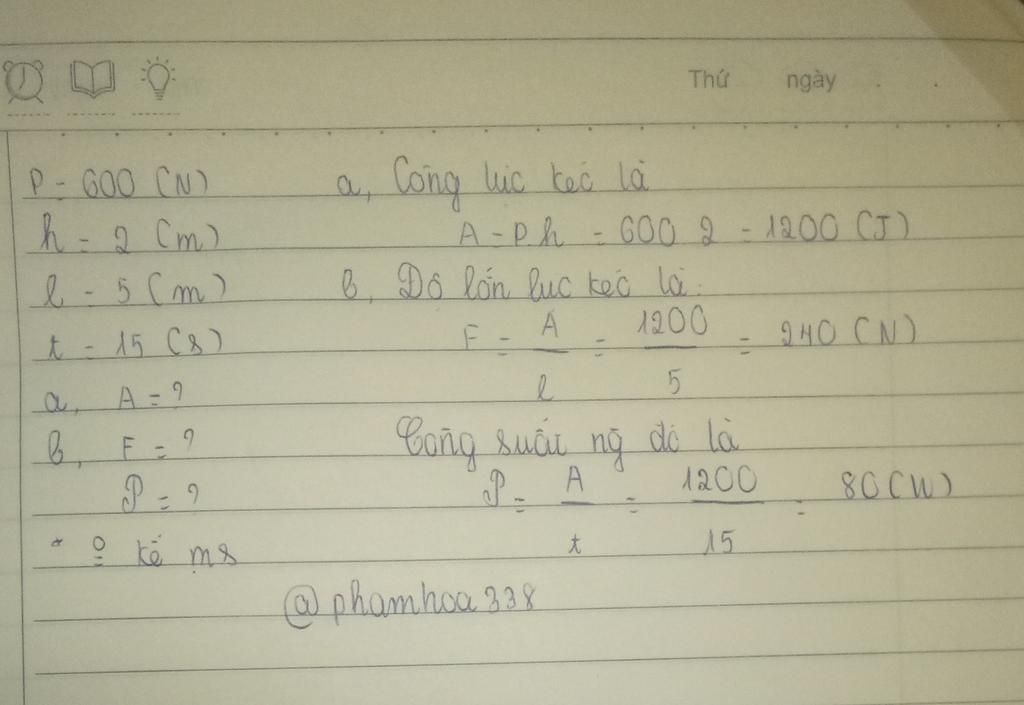 Thứ ngày
P = 600 (N) a, Công lực kéo là
h = 2 (m) A = P.h = 600.2 = 1200 (J)
l = 5 (m) b, Độ lớn lực kéo là:
t = 15 (s) F = A/l = 1200/5 = 240 (N)
a, A = ?
b, F = ? Công suất ng đó là
𝒫 = ? 𝒫 = A/t = 1200/15 = 80 (W)
* o kể ms
@phamhoa338